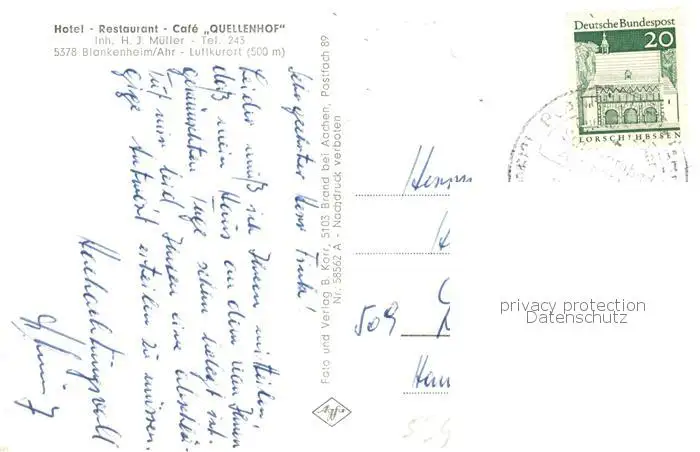 Hotel - Restaurant - Café „QUELLENHOF"
Inh. H. J. Müller - Tel. 243
5378 Blankenheim/Ahr - Luftkurort (500 m)
Sehr geehrter Herr Fink!
Leider muß ich Ihnen mitteilen,
daß mein Haus an dem von Ihnen
gewünschten Tage schon belegt ist.
Tut mir leid Ihnen eine abschlä-
gige Antwort erteilen zu müssen.
Hochachtungsvoll
Foto und Verlag B. Korr, 5103 Brand bei Aachen, Postfach 89
Nr. 58562 A - Nachdruck verboten
Deutsche Bundespost
20
LORSCH/HESSEN
Herrn
509
privacy protection
Datenschutz